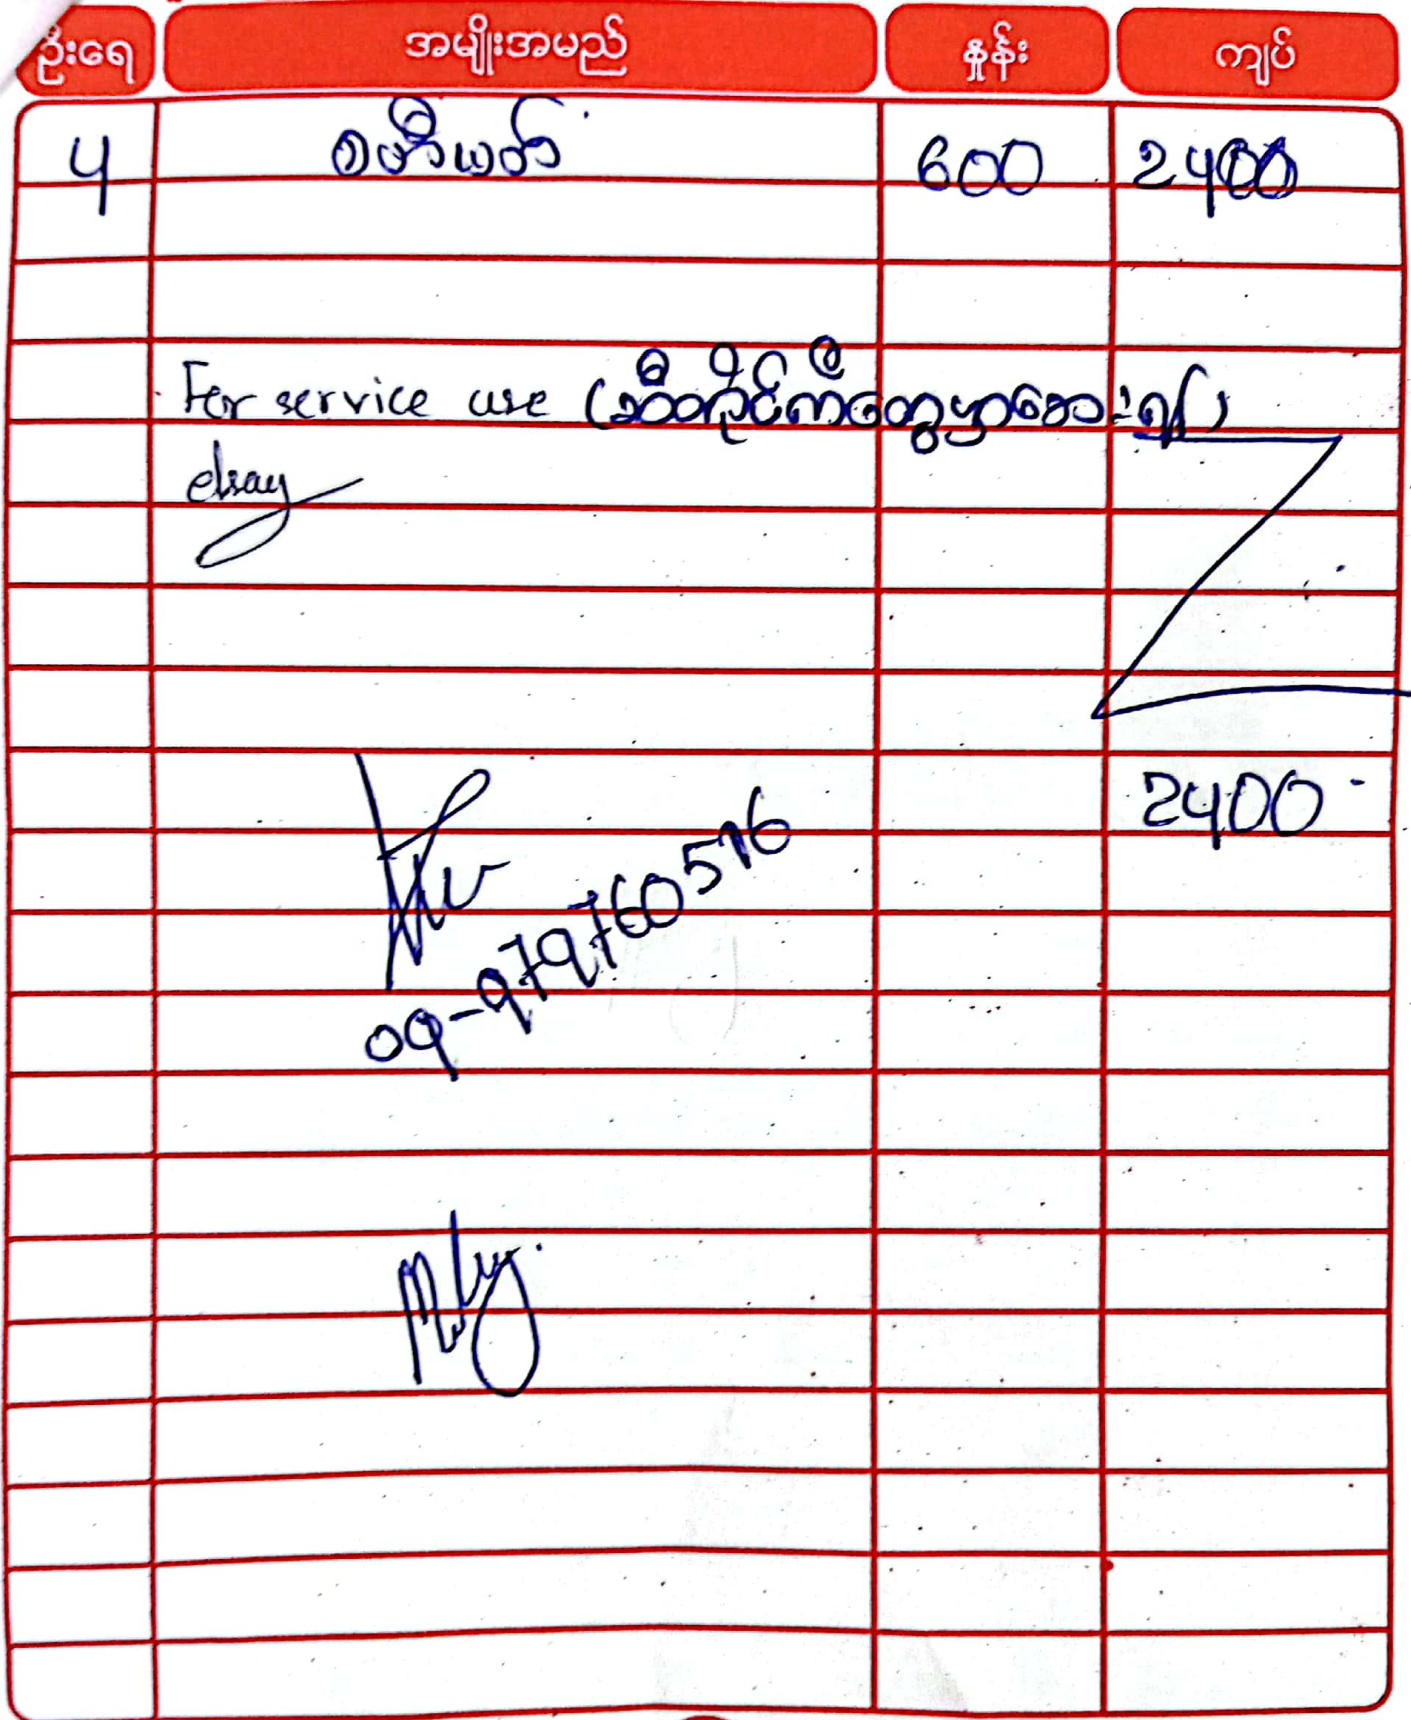 ဦးရေ အမျိုးအမည် နှုန်း ကျပ်
4 စတီဖတ် 600 2400
For service use (ဆီတိုင်ကီတွေမှာဆေးရန်)
2400
09-979760516